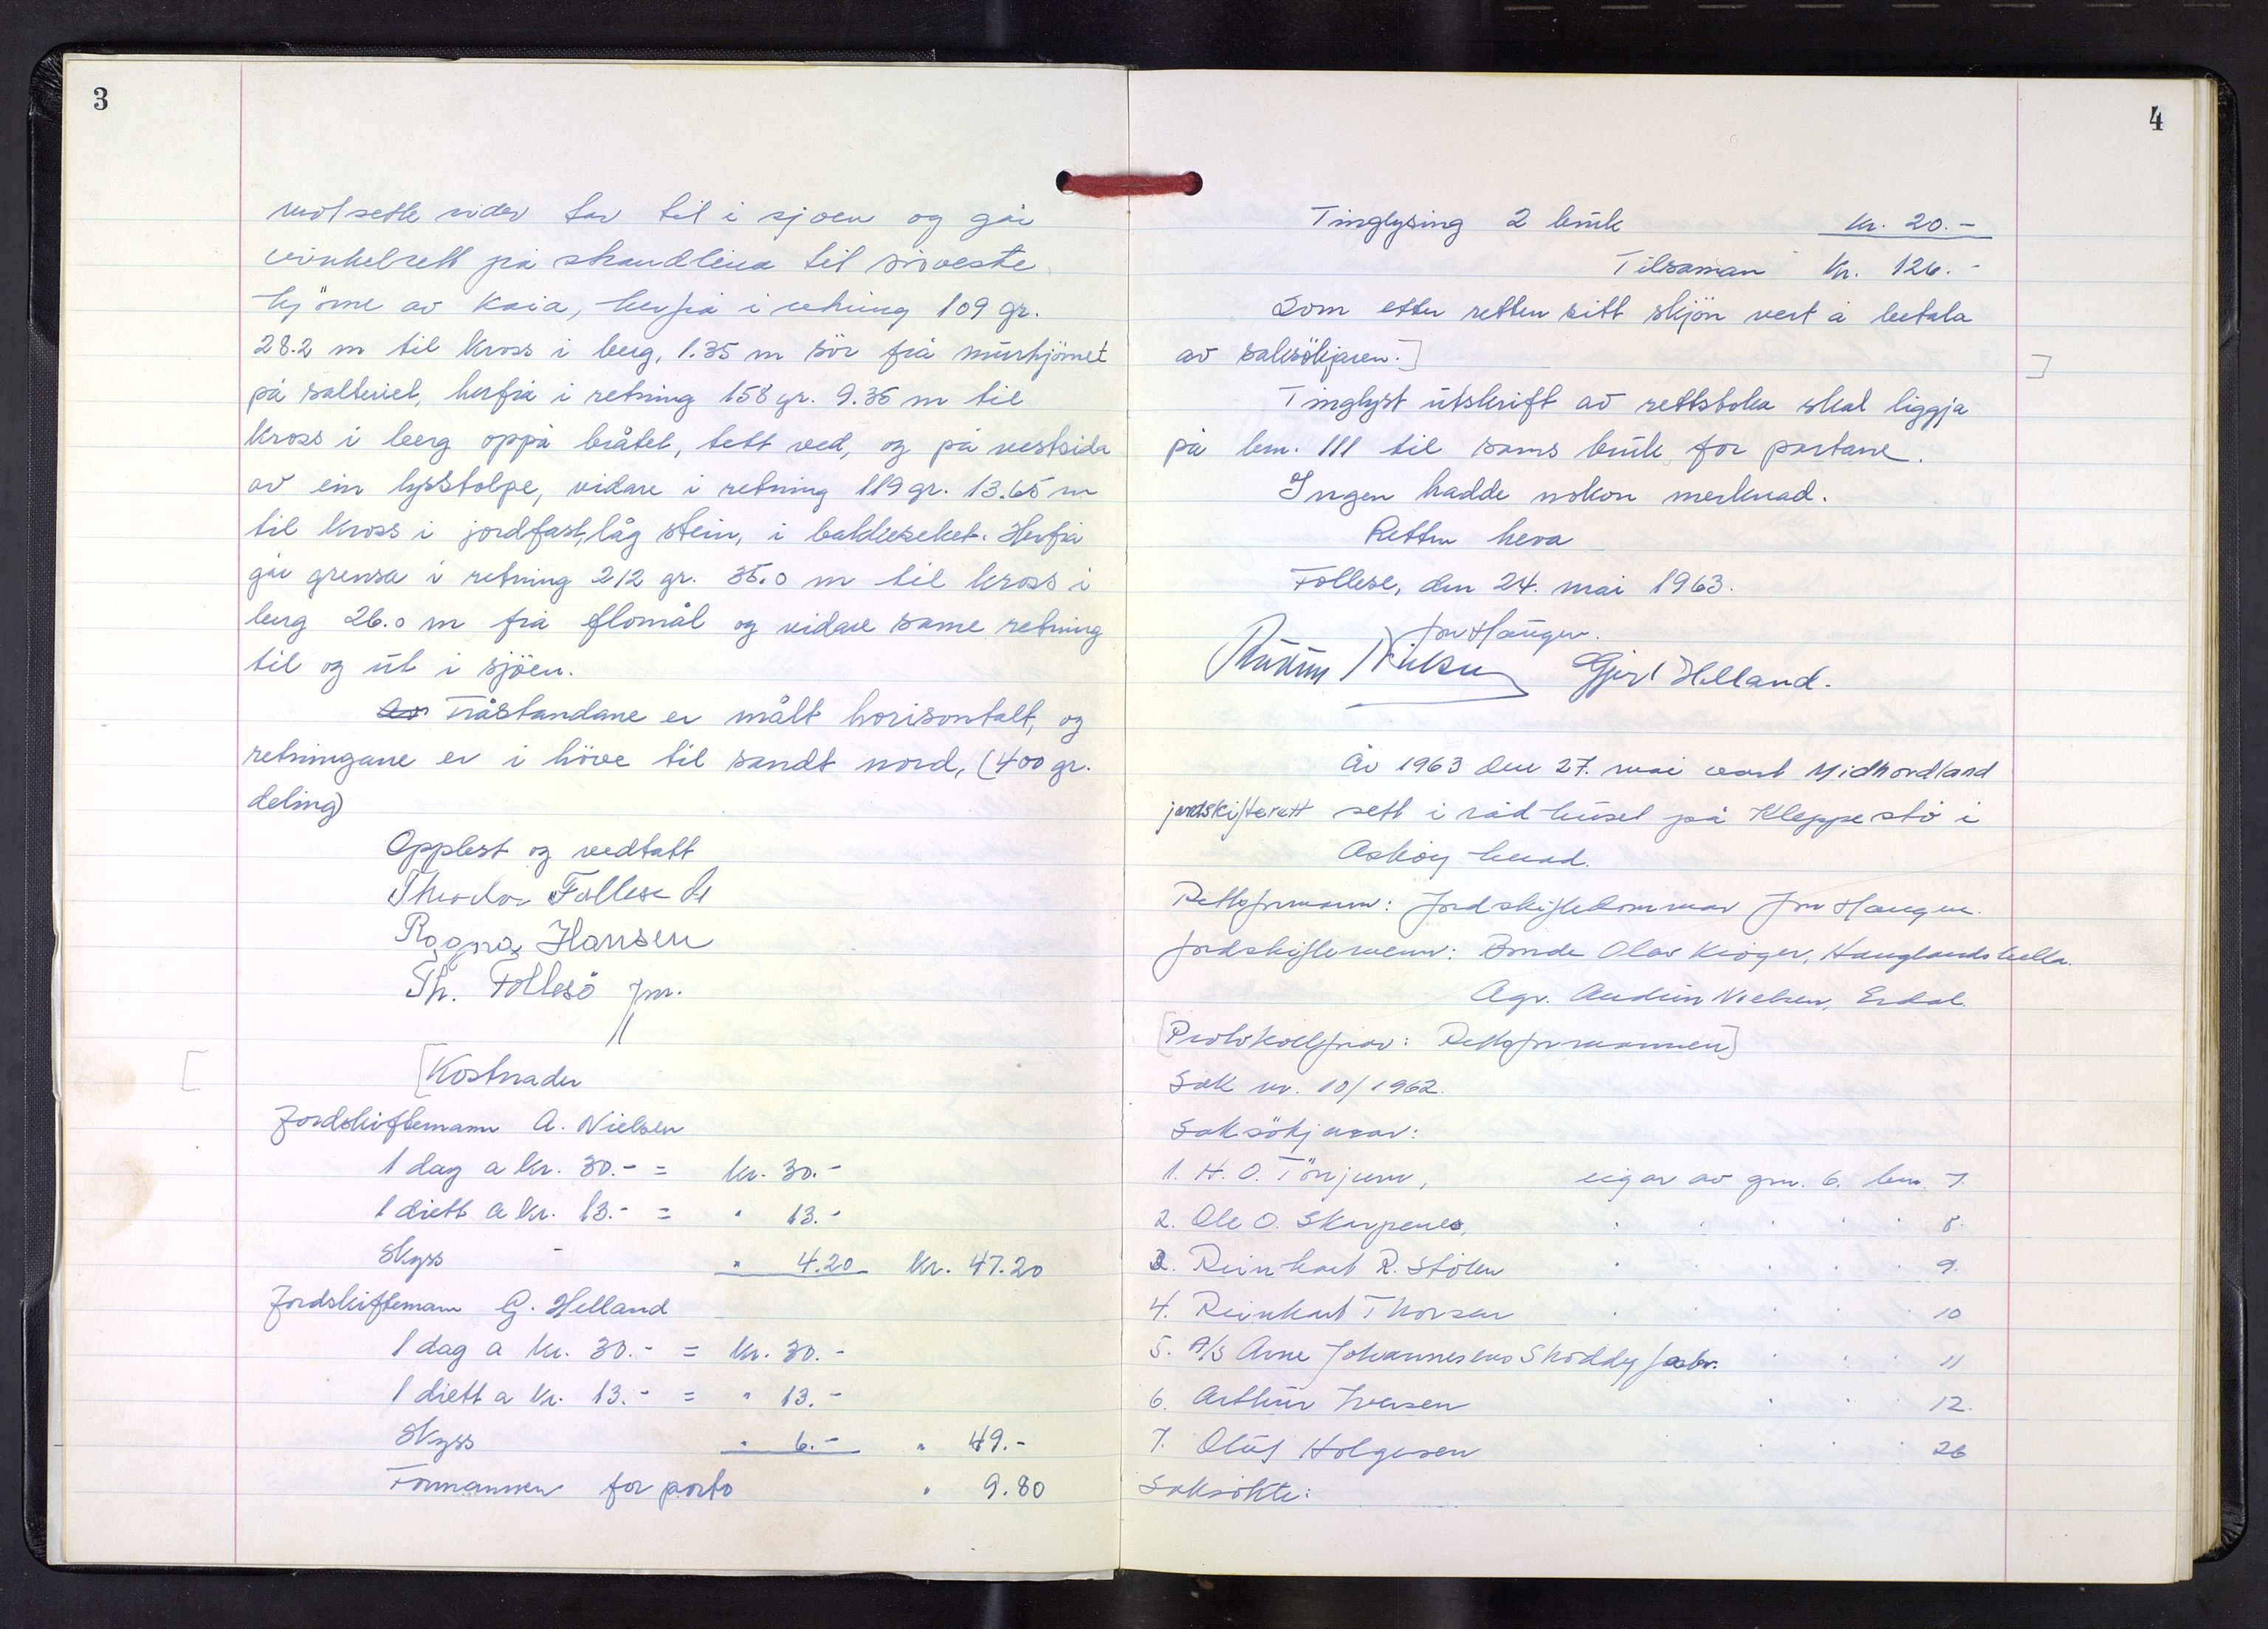 3
motsette sider tar til i sjøen og går
vinkelrett på strandlina til sørveste
hjørne av kaia, herfrå i retning 109 gr.
28.2 m til kross i berg, 1.35 m sör frå murhjörnet
på salteriet, herfrå i retning 158 gr. 9.35 m til
kross i berg oppå bråtet, tett ved, og på vestsida
av ein lysstolpe, vidare i retning 119 gr. 13.65 m
til kross i jordfast, låg stein, i bakkeseket. Herfrå
går grensa i retning 212 gr. 35.0 m til kross i
berg 26.0 m frå flomål og vidare same retning
til og ut i sjöen.
Fråstandane er målt horisontalt, og
retningane er i höve til sandt nord, (400 gr.
deling)
Opplest og vedtatt
Theodor Follesø
Ragna Hansen
Th. Follesö jnr.
[Kostnader
Jordskiftemann A. Nielsen
1 dag a kr. 30.- = kr. 30.-
1 diett a kr. 13.- = " 13.-
Skyss - " 4.20 kr. 47.20
Jordskiftemann G. Helland
1 dag a kr. 30.- = kr. 30.-
1 diett a kr. 13.- = " 13.-
Skyss " 6.- " 49.-
Formannen for porto " 9.80
4
Tinglysing 2 bruk kr. 20.-
Tilsaman kr. 126.-
Som etter retten sitt skjön vert å betala
av saksökjaren.]
Tinglyst utskrift av rettsboka skal liggja
på bnr. 111 til sams bruk for partane.
Ingen hadde nokon merknad.
Retten heva
Follese, den 24. mai 1963.
Jon Haugen.
Audun Nielsen Gjert Helland.
År 1963 den 27. mai vart Midhordland
jordskifterett sett i rådhuset på Kleppestø i
Askøy herad.
Rettsformann: Jordskiftedommar Jon Haugen.
Jordskiftemenn: Bonde Olav Krøger, Hauglandshella.
Agr. Audun Nielsen, Erdal.
[Protokollførar: Rettsformannen]
Sak nr. 10/1962.
Saksökjarar:
1. H. O. Tönjum, eigar av gnr. 6. bnr. 7.
2. Ole O. Skarpenes, " " " " " 8.
3. Reinhart R. Stölen " " " " " 9.
4. Reinhart Thorsen " " " " " 10
5. A/S Arne Johannesens Shoddyfabr. " " " 11
6. Arthur Iversen " " " 12.
7. Oluf Holgersen " " " 26
Saksökte: